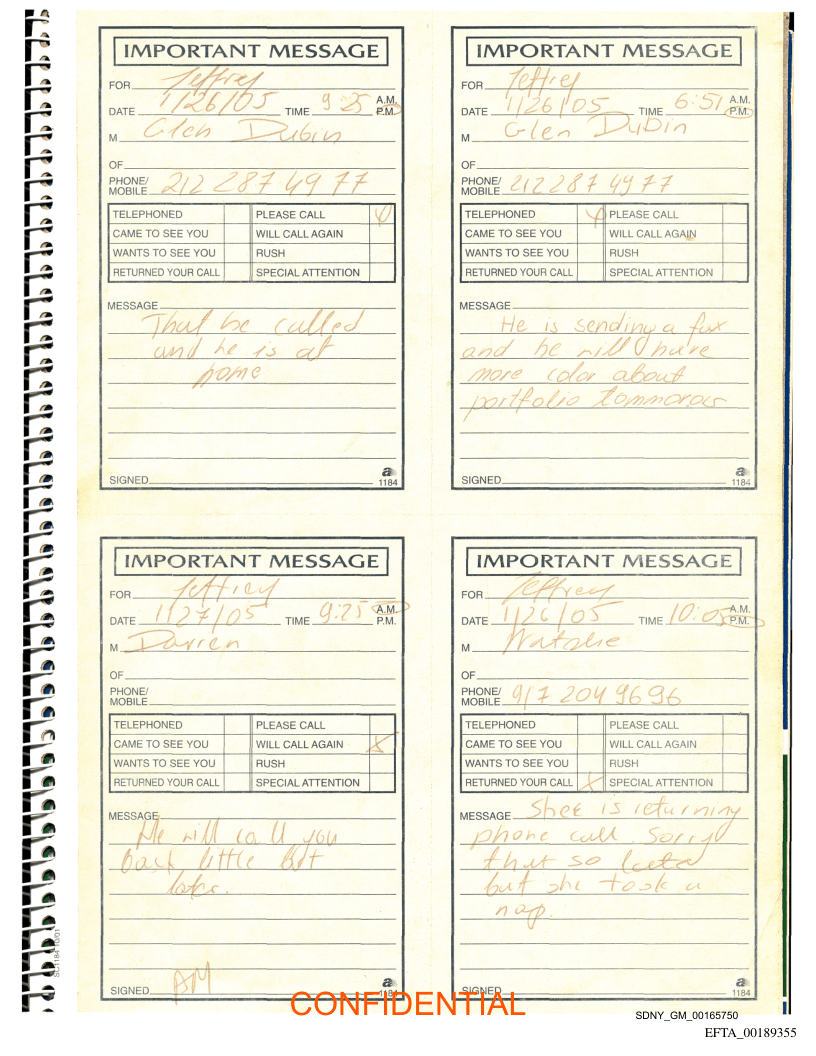 IMPORTANT MESSAGE
FOR Jeffrey
DATE 1/26/05 TIME 9 25 A.M. P.M.
M Glen Dubin
OF
PHONE/ MOBILE 212 287 4977
TELEPHONED PLEASE CALL
CAME TO SEE YOU WILL CALL AGAIN
WANTS TO SEE YOU RUSH
RETURNED YOUR CALL SPECIAL ATTENTION
MESSAGE
That he called
and he is at
home
SIGNED
a
1184
IMPORTANT MESSAGE
FOR Jeffrey
DATE 1/26/05 TIME 6:51 A.M. P.M.
M Glen Dubin
OF
PHONE/ MOBILE 212 287 4977
TELEPHONED PLEASE CALL
CAME TO SEE YOU WILL CALL AGAIN
WANTS TO SEE YOU RUSH
RETURNED YOUR CALL SPECIAL ATTENTION
MESSAGE
He is sending a fax
and he will have
more color about
portfolio tommorow
SIGNED
a
1184
IMPORTANT MESSAGE
FOR Jeffrey
DATE 1/27/05 TIME 9:25 A.M. P.M.
M Darren
OF
PHONE/ MOBILE
TELEPHONED PLEASE CALL
CAME TO SEE YOU WILL CALL AGAIN X
WANTS TO SEE YOU RUSH
RETURNED YOUR CALL SPECIAL ATTENTION
MESSAGE
He will call you
back little bit
later.
SIGNED AM
a
1184
IMPORTANT MESSAGE
FOR Jeffrey
DATE 1/26/05 TIME 10:05 A.M. P.M.
M Natalie
OF
PHONE/ MOBILE 917 204 9696
TELEPHONED PLEASE CALL
CAME TO SEE YOU WILL CALL AGAIN
WANTS TO SEE YOU RUSH
RETURNED YOUR CALL X SPECIAL ATTENTION
MESSAGE Shee is returning
phone call. Sorry
that so late
but she took a
nap.
SIGNED
a
1184
SC1184 10/01
CONFIDENTIAL
SDNY_GM_00165750
EFTA_00189355